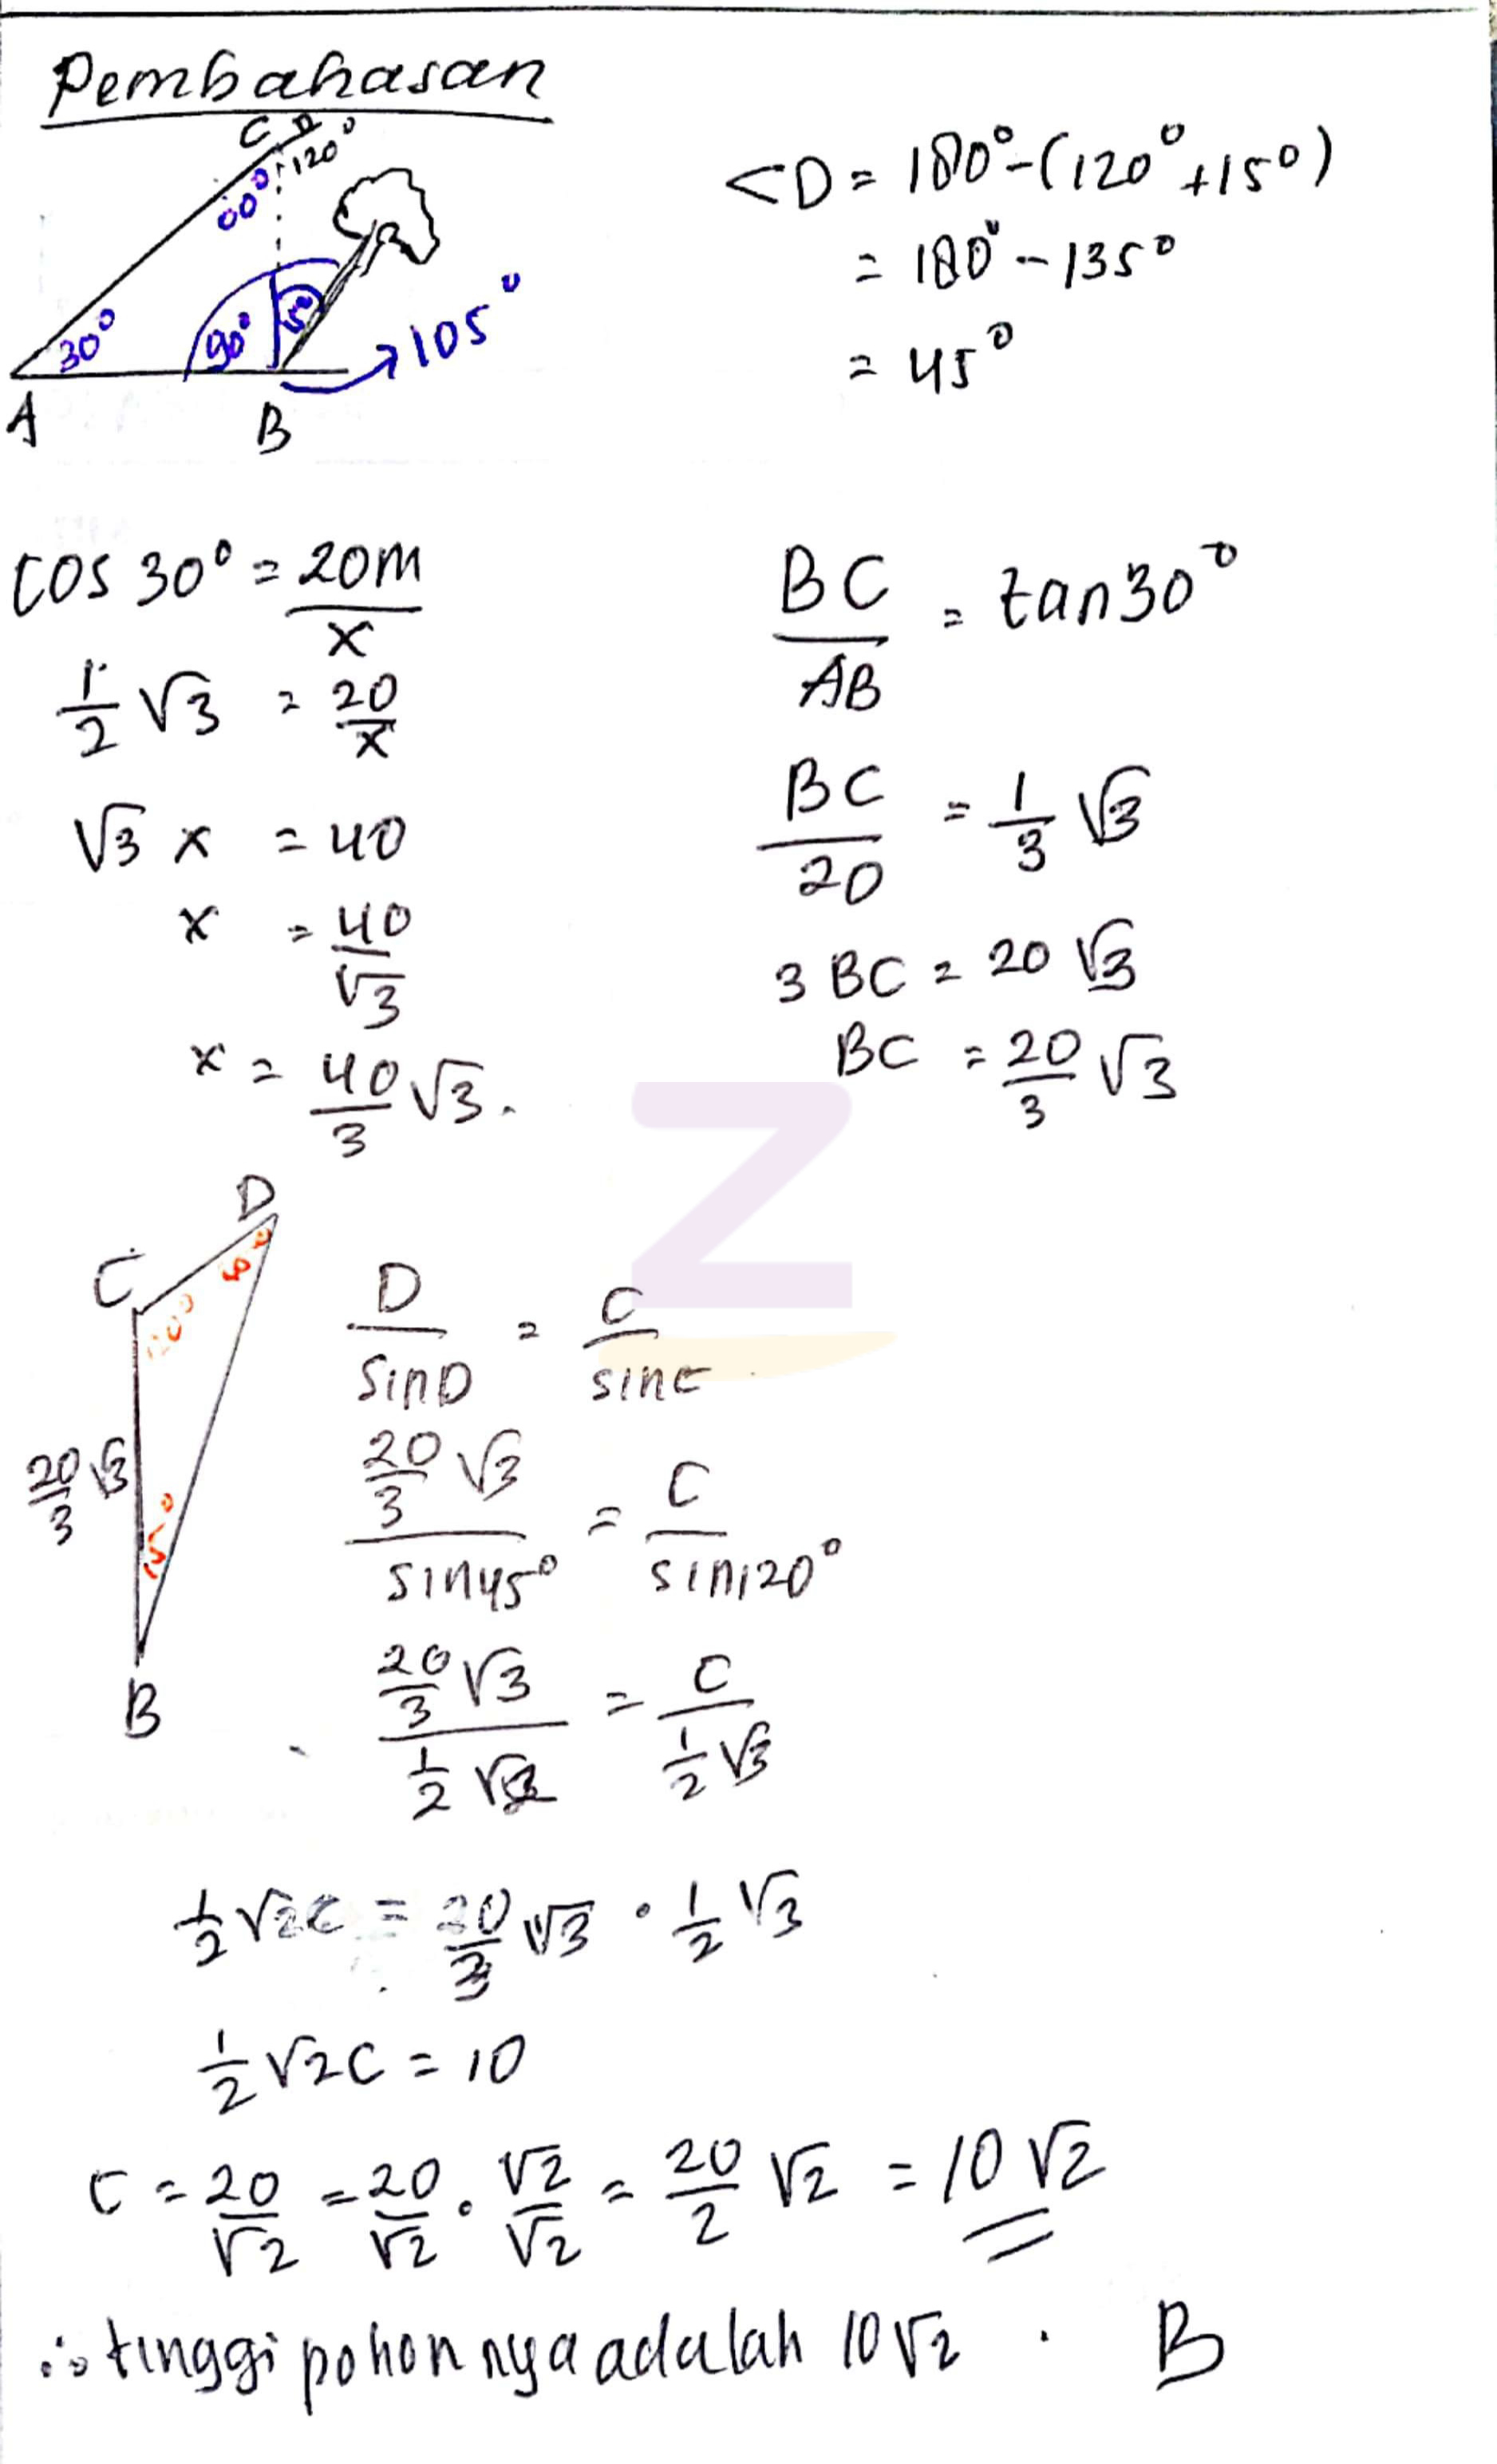 Pembahasan
C D
120°
60°
30°
90°
15°
105°
A
B
<D = 180° - (120° + 15°)
= 180° - 135°
= 45°
cos 30° = 20m / x
1/2 √3 = 20/x
√3 x = 40
x = 40/√3
x = 40/3 √3.
BC/AB = tan 30°
BC/20 = 1/3 √3
3 BC = 20 √3
BC = 20/3 √3
Z
D
C
120°
20/3 √3
15°
B
D/sin D = C/sin C
20/3 √3 / sin 45° = C / sin 120°
20/3 √3 / 1/2 √2 = C / 1/2 √3
1/2 √2 C = 20/3 √3 · 1/2 √3
1/2 √2 C = 10
C = 20/√2 = 20/√2 · √2/√2 = 20/2 √2 = 10 √2
∴ tinggi pohonnya adalah 10√2 . B